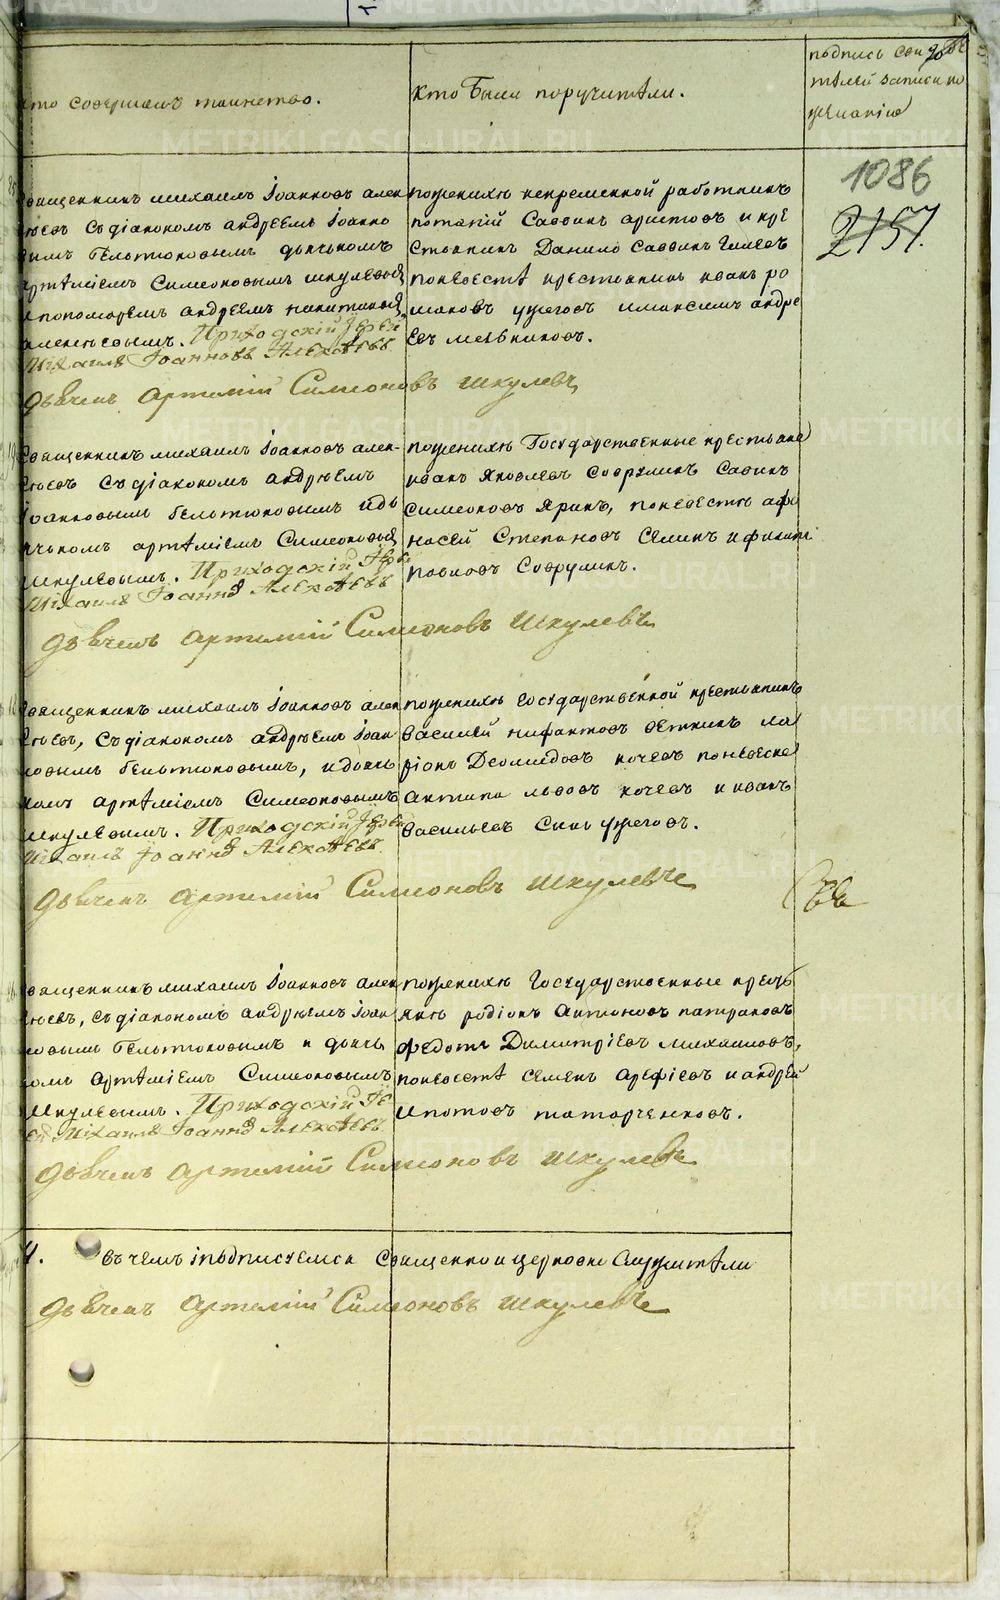 кто совершалъ таинство.
Кто были поручители.
подпись свидѣ
тѣлей записи по
желанію
1086
2157.
священникъ михаилъ Іоанновъ алек
сѣевъ съ діакономъ андреемъ Іоанно
вымъ бельтюковымъ дьячькомъ
артѣміемъ симеоновымъ шкулевы
и пономоремъ андреемъ никитинымъ
алексѣевымъ. Приходскій Іерей
Міхаилъ Іоанновъ Алеѯѣевъ
дьячекъ артемій Симеоновъ шкулевъ
пожениху непременной работникъ
потапій Саввинъ аристовъ и кре
стьянинъ Данило Саввинъ Гилевъ
поневестѣ крестьянинъ иванъ ро
мановъ ужегов имаксимъ андре
евъ мельниковъ.
священникъ михаилъ Іоанновъ алек-
сѣевъ съ діакономъ андрѣемъ
Іоанновымъ бельтюковымъ идь
ячькомъ артѣміемъ Симеоновы
шкулевымъ. Приходскій Іере
Міхаилъ Іоаннов Алеѯѣевъ
дьячекъ артемій Симеоновъ Шкулевъ
пожениху Государственные крестьяне
иванъ яковлевъ Совруликъ Савинъ
симеоновъ яринъ, поневестѣ афо
насей Степановъ Семинъ и филипъ
павловъ Соврулинъ.
священникъ михаилъ Іоанновъ алек
сѣевъ, съ діакономъ андрѣемъ Іоан
новымъ бельтюковымъ, и дьячь
комъ артѣміемъ Симеоновымъ
шкулевымъ. Приходскій Іерей
Міхаилъ Іоаннов Алеѯѣевъ.
дьячекъ артемій Симеоновъ шкулевъ
пожениху государственной крестьянинъ
василей нифантовъ вѣткинъ ла
ріонъ Деомидовъ кочевъ поневеске
антипа львовъ кочевъ и иванъ
васильевъ Сынъ ужеговъ.
священникъ михаилъ Іоанновъ алек
сѣевъ, съ діакономъ андрѣемъ Іоан
новымъ бельтюковымъ и дьячь
комъ артѣміемъ Симеоновымъ
шкулевымъ. Приходскій Іе
рей Міхаилъ Іоаннов Алеѯѣевъ.
дьячекъ артемій Симеоновъ шкулевъ
пожениху Государственные кресть
яне родіонъ Антоновъ патраковъ
федотъ Димитріевъ михаиловъ,
поневестѣ семенъ арефіевъ и андрей
ипатовъ татарченковъ.
4. въ чемъ іподписуемся Священно и церковно служитѣли
дьячекъ артемій Симеоновъ шкулевъ
METRIKI.GASO-URAL.RU